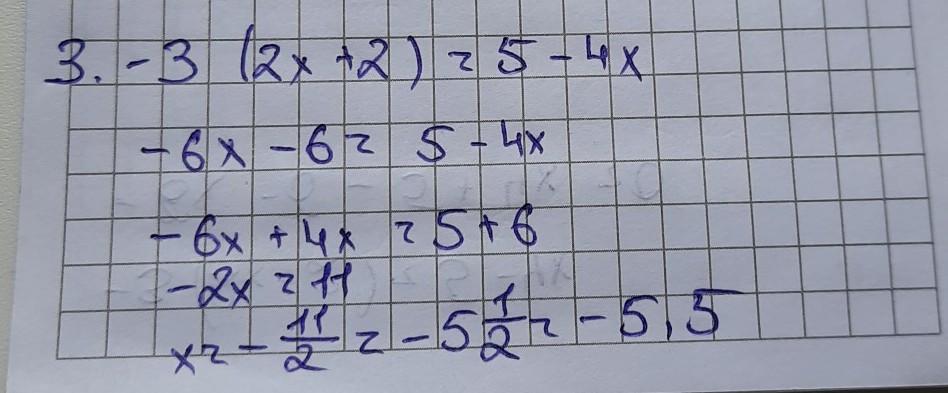 3. -3 (2x+2) = 5 - 4x
-6x - 6 = 5 - 4x
-6x + 4x = 5 + 6
-2x = 11
x = - 11/2 = - 5 1/2 = - 5,5